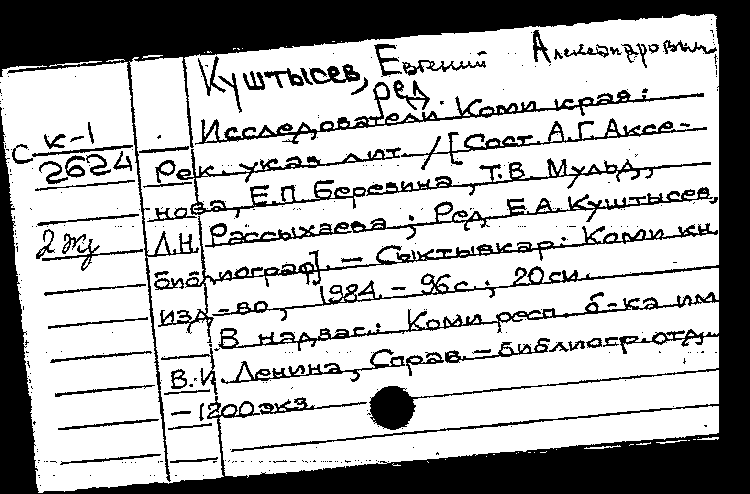 Куштысев, Евгений Александрович
ред.
С к-1
2624
Исследователи Коми края:
Рек. указ. лит. / [Сост. А.Г. Аксе-
нова, Е.П. Березина, Т.В. Мульд,
2 экз
Л.Н. Рассыхаева; Ред. Е.А. Куштысев,
библиограф]. - Сыктывкар: Коми кн.
изд-во, 1984. - 96с.; 20см.
В надзаг.: Коми респ. б-ка им
В.И. Ленина, Справ.-библиогр. отд.
- 1200 экз.